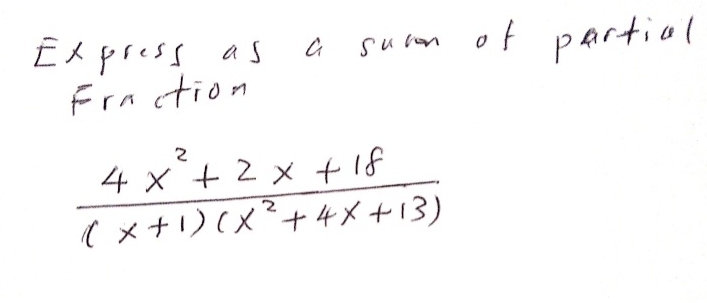 Express as a sum of partial
Fraction
4x² + 2x + 18
(x+1)(x²+4x+13)